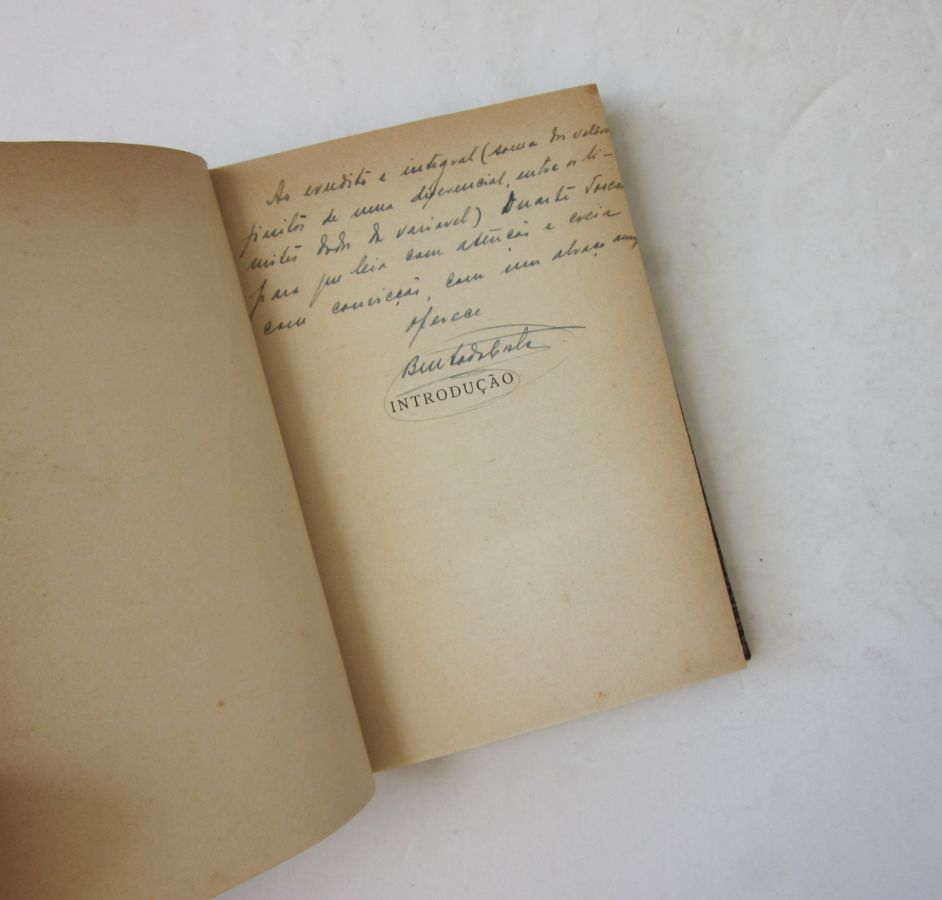 Ao erudito e integral (soma dos valores
finitos de uma diferencial, entre os li-
mites dados da variavel) Duarte
para que leia com atenção e creia
com convicção, com um abraço
oferece
INTRODUÇÃO